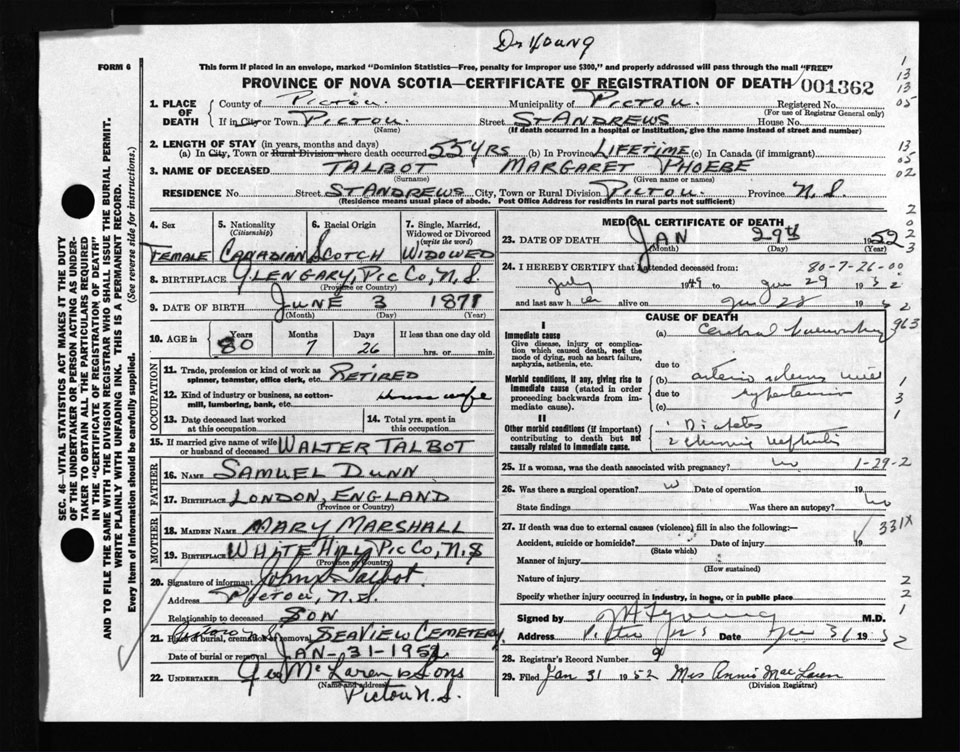 Dr Young
FORM 6
This form if placed in an envelope, marked "Dominion Statistics—Free, penalty for improper use $300," and properly addressed will pass through the mail "FREE"
PROVINCE OF NOVA SCOTIA—CERTIFICATE OF REGISTRATION OF DEATH 001362
1. PLACE OF DEATH County of PICTOU. Municipality of PICTOU. Registered No.
(For use of Registrar General only)
If in City or Town PICTOU. Street ST ANDREWS House No.
(Name) (If death occurred in a hospital or institution, give the name instead of street and number)
2. LENGTH OF STAY (in years, months and days)
(a) In City, Town or Rural Division where death occurred 55 YRS (b) In Province LIFETIME (c) In Canada (if immigrant)
3. NAME OF DECEASED TALBOT MARGARET PHOEBE
(Surname) (Given name or names)
RESIDENCE No. Street ST ANDREWS City, Town or Rural Division PICTOU. Province N.S.
(Residence means usual place of abode. Post Office Address for residents in rural parts not sufficient)
4. Sex 5. Nationality (Citizenship) 6. Racial Origin 7. Single, Married, Widowed or Divorced (write the word)
FEMALE CANADIAN SCOTCH WIDOWED
8. BIRTHPLACE GLENGARY, PIC CO, N.S.
(Province or Country)
9. DATE OF BIRTH JUNE 3 1871
(Month) (Day) (Year)
10. AGE in Years Months Days If less than one day old
80 7 26 hrs. or min.
OCCUPATION
11. Trade, profession or kind of work as spinner, teamster, office clerk, etc. RETIRED
12. Kind of industry or business, as cotton-mill, lumbering, bank, etc. House wife
13. Date deceased last worked at this occupation 14. Total yrs. spent in this occupation
15. If married give name of wife or husband of deceased WALTER TALBOT
FATHER
16. Name SAMUEL DUNN
17. Birthplace LONDON, ENGLAND
(Province or Country)
MOTHER
18. Maiden Name MARY MARSHALL
19. Birthplace WHITE HILL, PIC CO, N.S
(Province or Country)
20. Signature of informant John Talbot.
Address Pictou, N.S.
Relationship to deceased SON
21. Place of burial, cremation or removal SEAVIEW CEMETERY
Date of burial or removal JAN-31-1952
22. UNDERTAKER Geo McLaren & Sons
(Name and address)
Pictou N.S.
MEDICAL CERTIFICATE OF DEATH
23. DATE OF DEATH JAN 29th 1952
(Month) (Day) (Year)
24. I HEREBY CERTIFY that I attended deceased from: 80-7-26-00
July 1949 to Jan 29 1952
and last saw her alive on Jan 28 52
CAUSE OF DEATH
I
Immediate cause
Give disease, injury or complication which caused death, not the mode of dying, such as heart failure, asphyxia, asthenia, etc.
(a) Cerebral 963
due to
Morbid conditions, if any, giving rise to immediate cause (stated in order proceeding backwards from immediate cause).
(b) arterio sclerosis with
due to hypertension
(c)
II
Other morbid conditions (if important) contributing to death but not causally related to immediate cause.
1 Diabetes
2 Chronic nephritis
25. If a woman, was the death associated with pregnancy? no 1-29-2
26. Was there a surgical operation? no Date of operation 19
State findings Was there an autopsy? no
27. If death was due to external causes (violence) fill in also the following:— 331X
Accident, suicide or homicide? Date of injury 19
(State which)
Manner of injury
(How sustained)
Nature of injury
Specify whether injury occurred in industry, in home, or in public place
Signed by Young M.D.
Address Pictou NS Date Jan 31 1952
28. Registrar's Record Number 9
29. Filed Jan 31 1952 Mrs Annie MacLaren
(Division Registrar)
SEC. 46—VITAL STATISTICS ACT MAKES IT THE DUTY
OF THE UNDERTAKER OR PERSON ACTING AS UNDER-
TAKER TO OBTAIN ALL THE PARTICULARS REQUIRED
IN THE "CERTIFICATE OF REGISTRATION OF DEATH"
AND TO FILE THE SAME WITH THE DIVISION REGISTRAR WHO SHALL ISSUE THE BURIAL PERMIT.
WRITE PLAINLY WITH UNFADING INK. THIS IS A PERMANENT RECORD.
Every item of information should be carefully supplied. (See reverse side for instructions.)
1
13
13
05
13
05
02
2
0
2
3
1
3
1
2
2
1